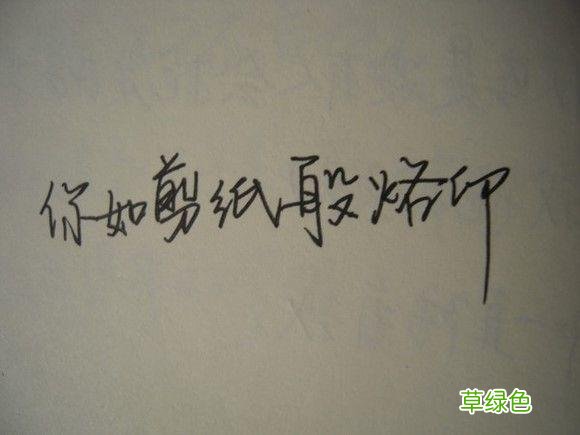 你如剪纸般烙印
草绿色